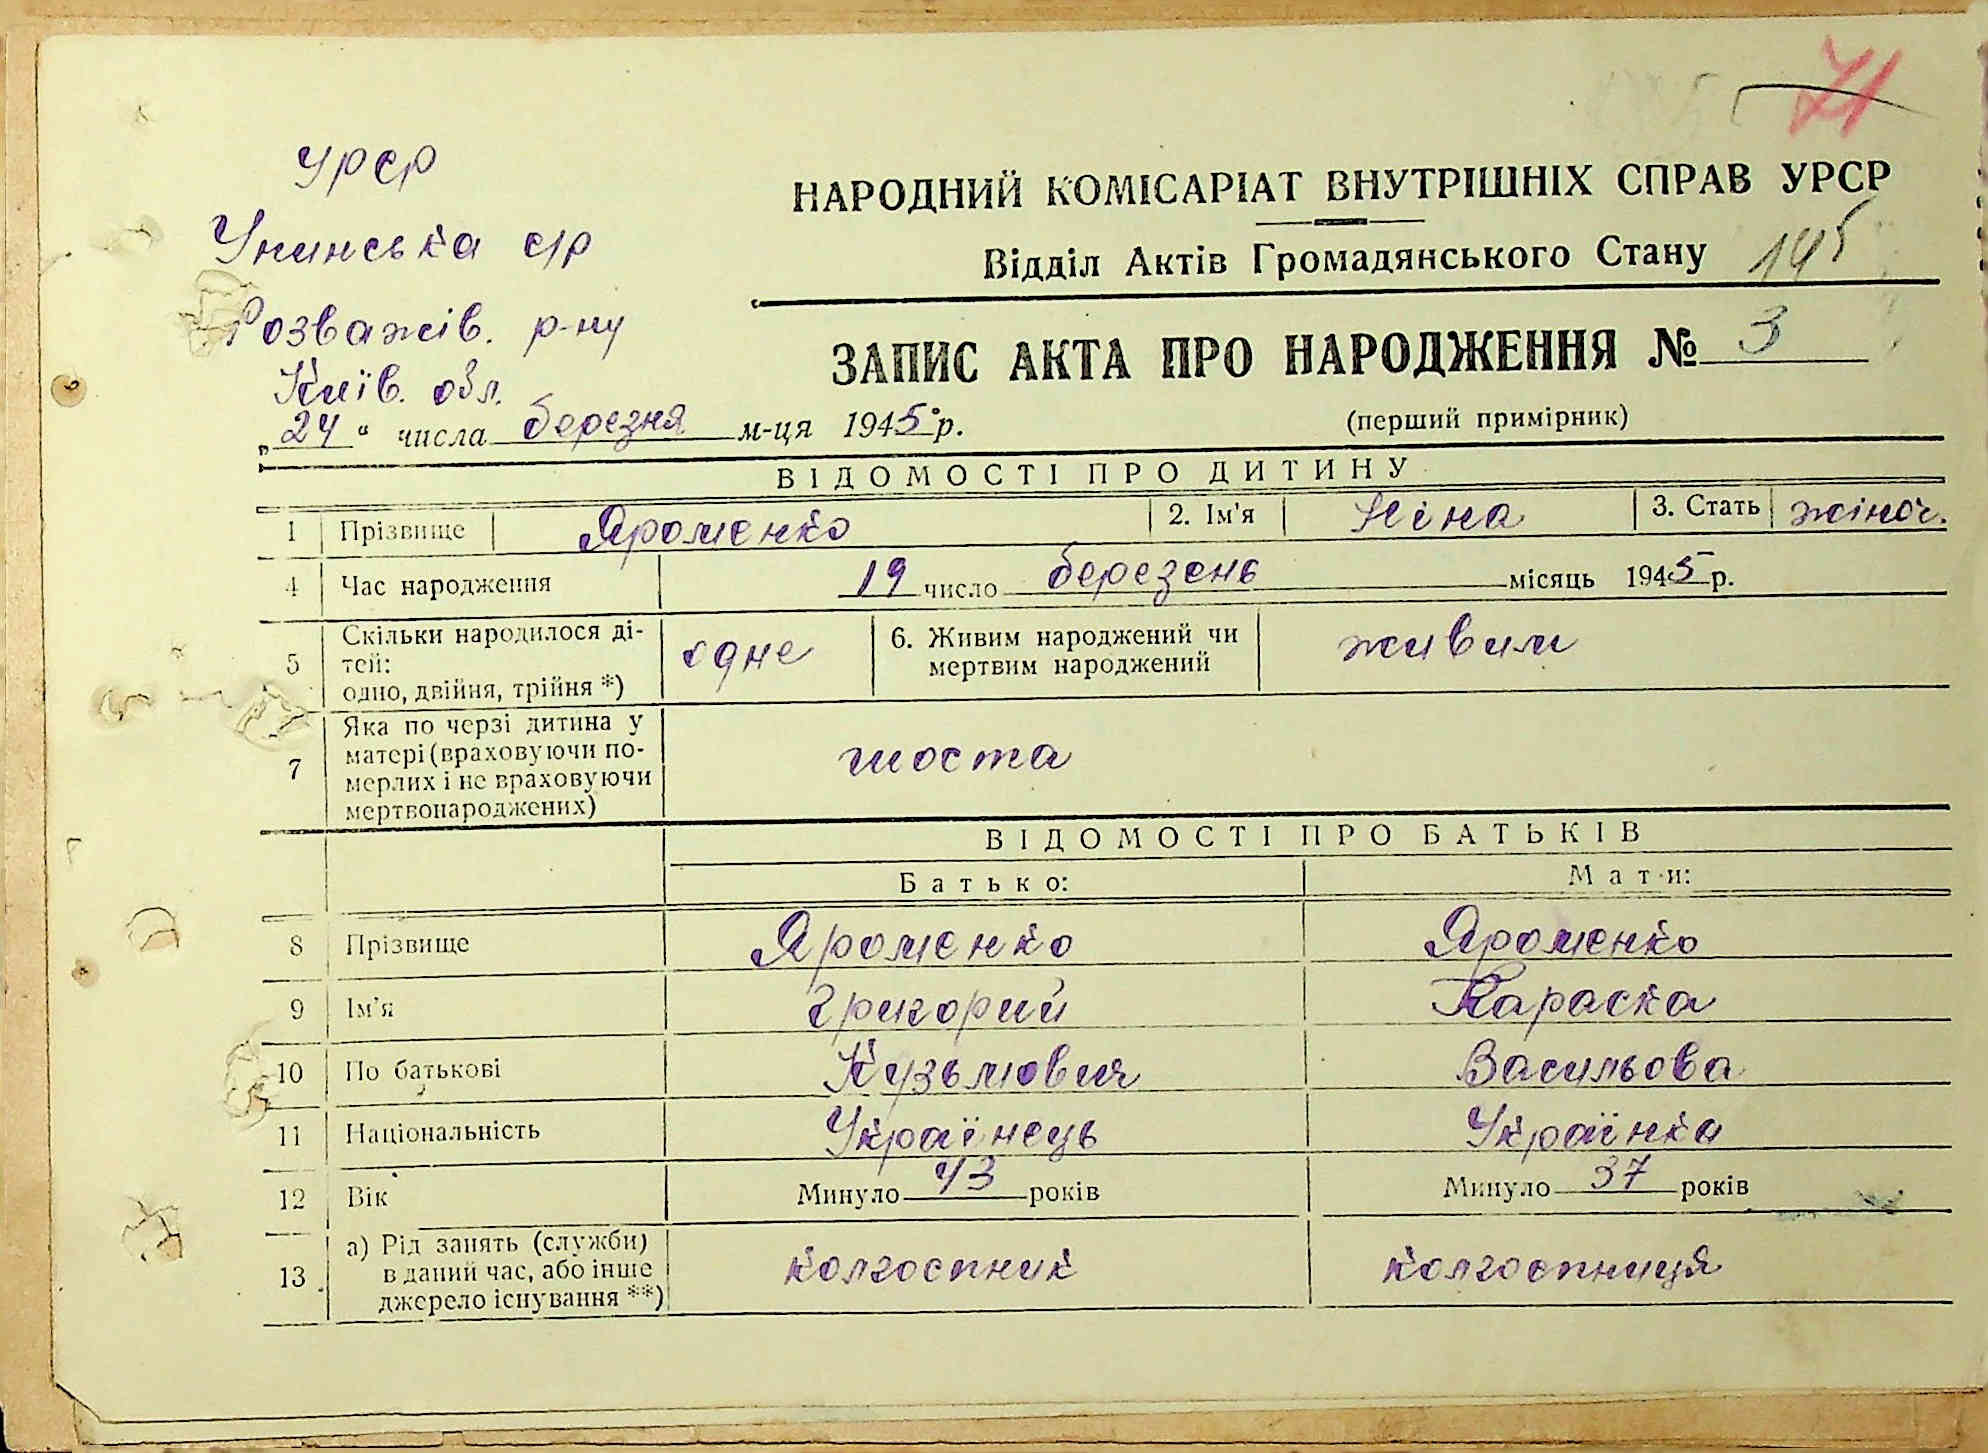 71
УРСР
Унинська с/р
Розважів. р-ну
Київ. обл.
„24“ числа березня м-ця 1945 р.
НАРОДНИЙ КОМІСАРІАТ ВНУТРІШНІХ СПРАВ УРСР
Відділ Актів Громадянського Стану 145
ЗАПИС АКТА ПРО НАРОДЖЕННЯ № 3
(перший примірник)
ВІДОМОСТІ ПРО ДИТИНУ
1 Прізвище Яроменко 2. Ім'я Ніна 3. Стать жіноч.
4 Час народження 19 число березень місяць 1945 р.
5 Скільки народилося ді-
тей:
одно, двійня, трійня *) одне 6. Живим народжений чи
мертвим народжений живим
7 Яка по черзі дитина у
матері (враховуючи по-
мерлих і не враховуючи
мертвонароджених) шоста
ВІДОМОСТІ ПРО БАТЬКІВ
Батько: Мати:
8 Прізвище Яроменко Яроменко
9 Ім'я Григорий Параска
10 По батькові Кузьмович Васильова
11 Національність Українець Українка
12 Вік Минуло 43 років Минуло 37 років
13 а) Рід занять (служби)
в даний час, або інше
джерело існування **) колгоспник колгоспниця